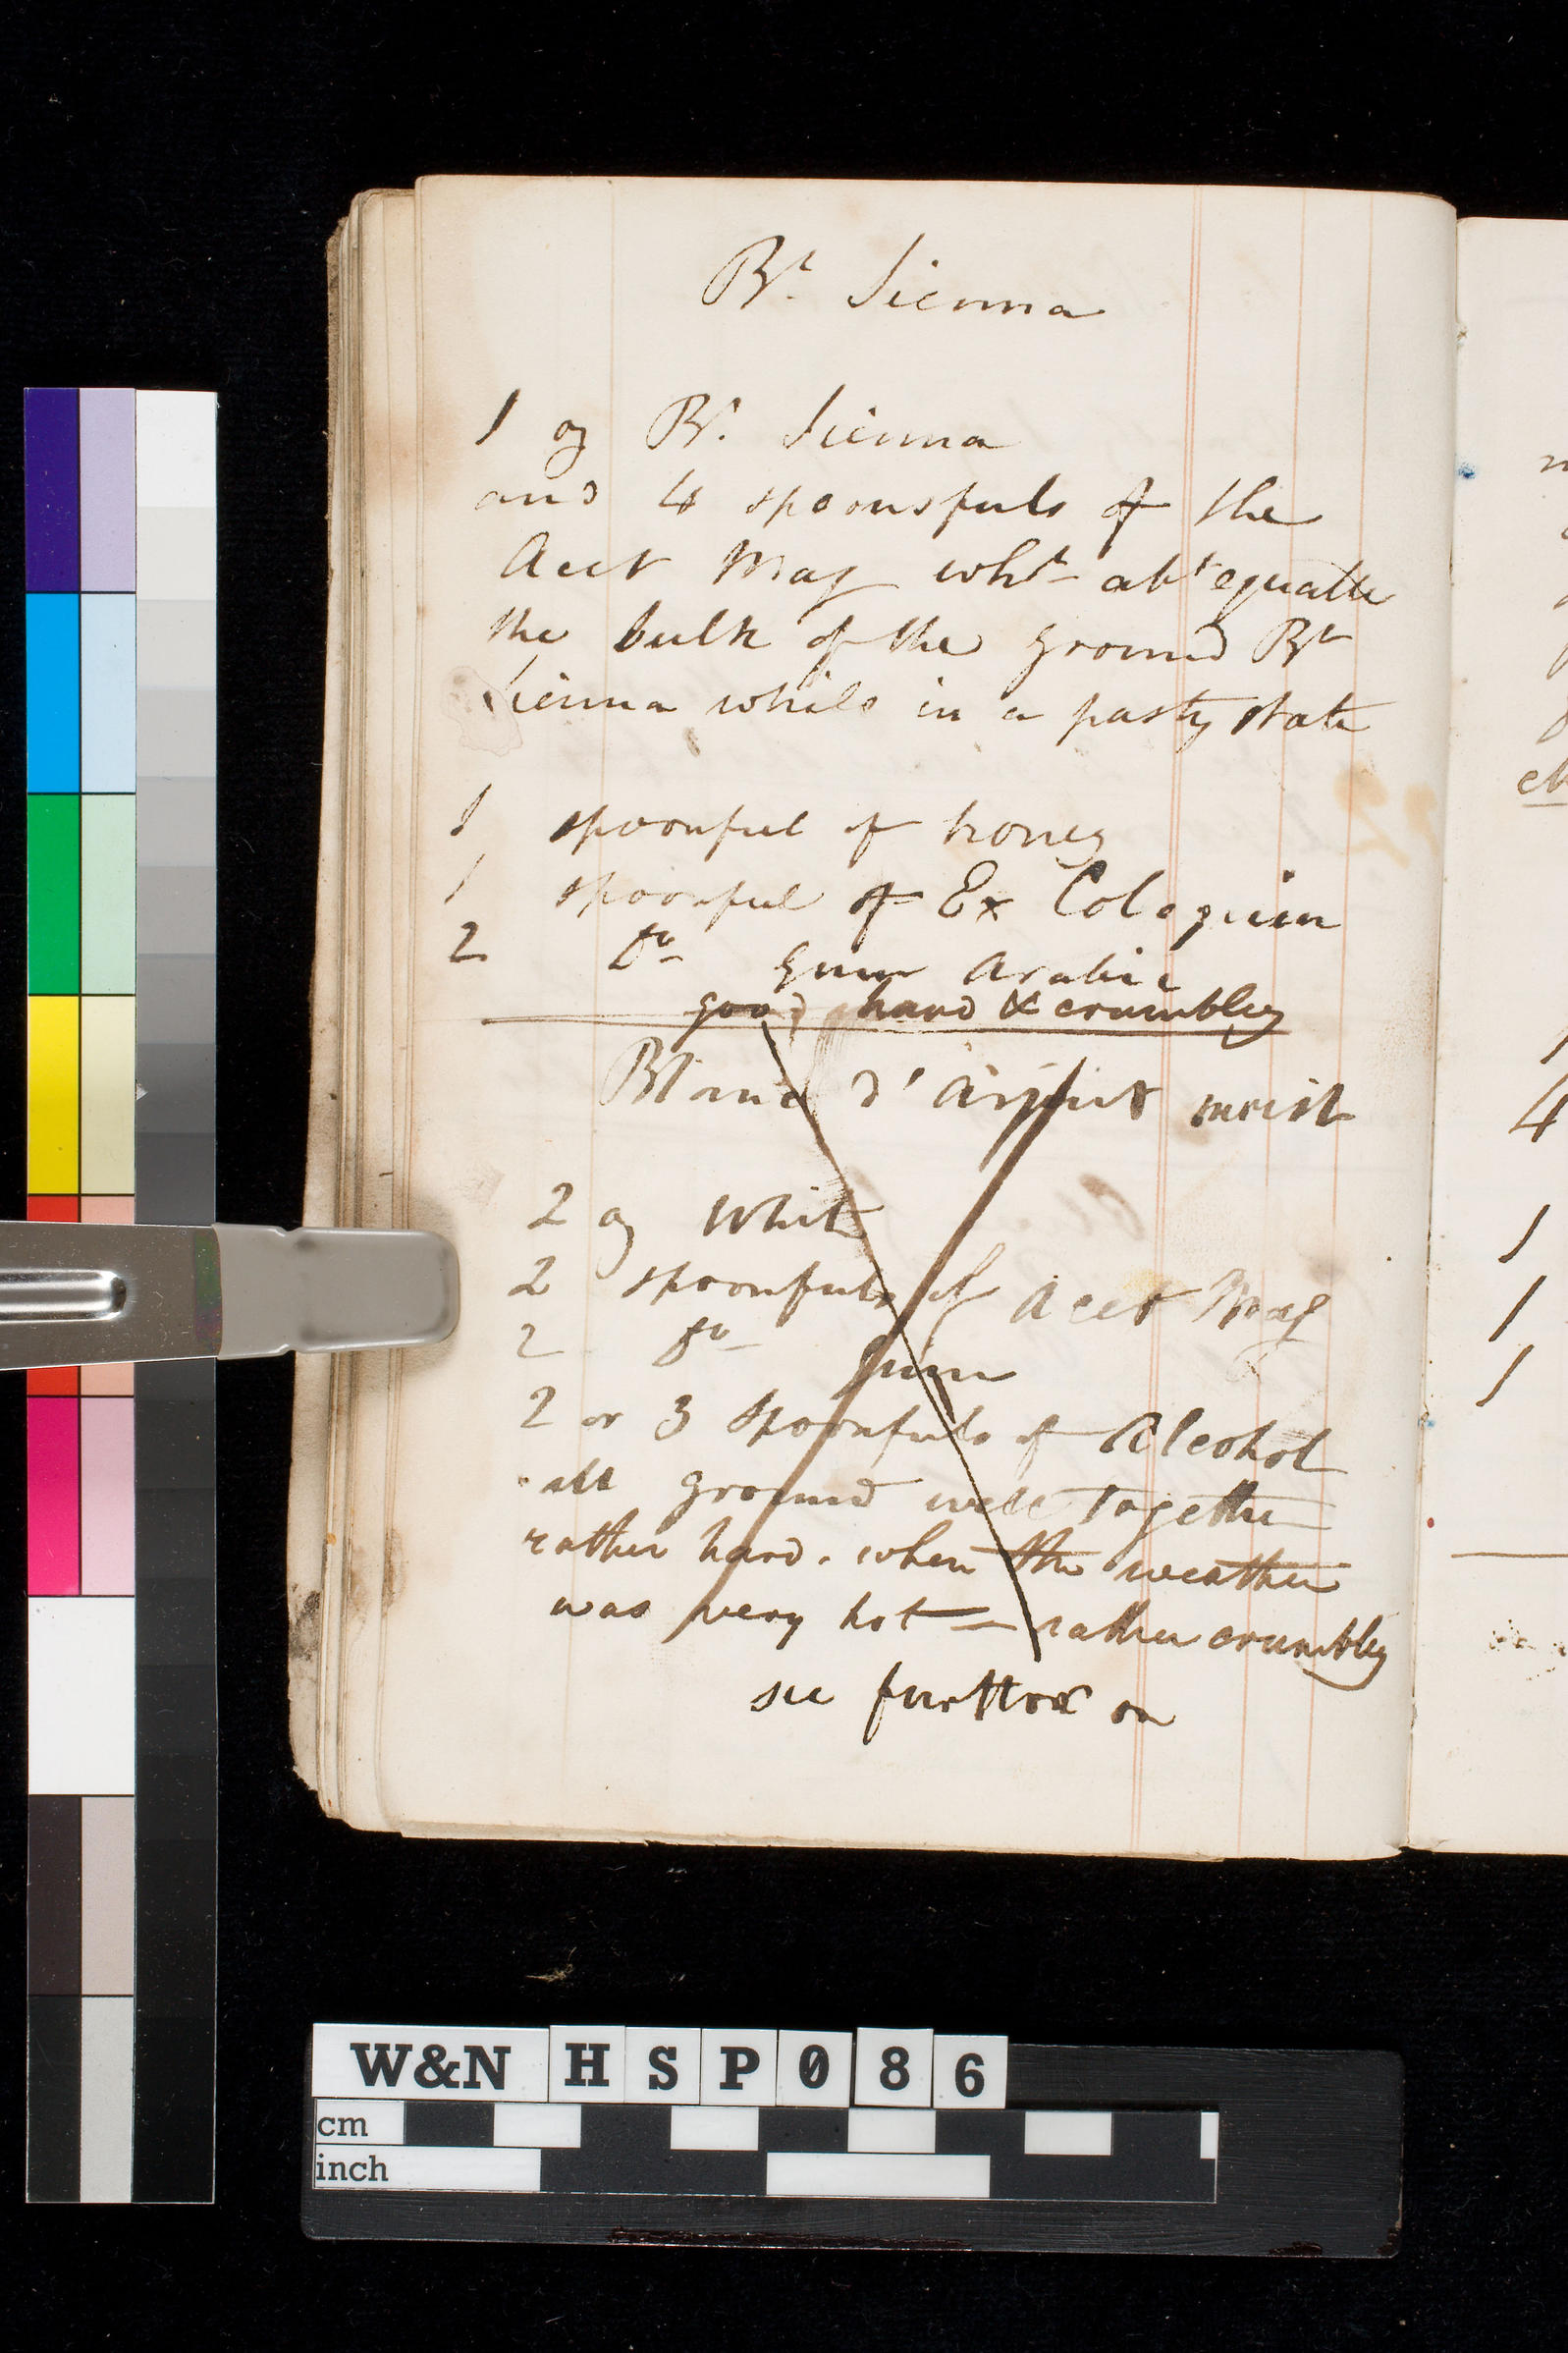 Bt. Sienna
1 oz Bt. Sienna
and 4 spoonsfuls of the
Acet Mag whh abt equalle
the bulk of the ground Bt
Sienna while in a pasty state
1 spoonful of honey
1 spoonful of Ex Coloquin
2 Do Gum Arabic
good hard & crumbley
Blanc d'Argent moist
2 oz White
2 spoonfuls of Acet Mag
2 Do Gum
2 or 3 spoonfuls of Alcohol
all ground well together
rather hard. when the weather
was very hot — rather crumbley
see further on
4
1
1
1
W&N HSP086
cm
inch